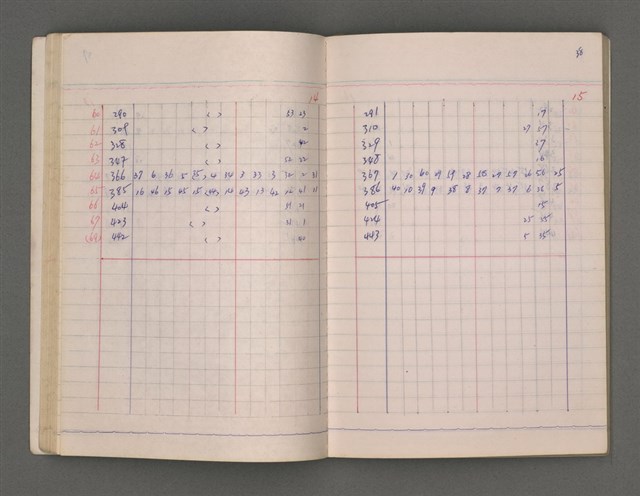 14
60 290 ( ) 53 23
61 309 ( ) 2
62 328 ( ) 42
63 347 ( ) 52 22
64 366 37 6 36 5 35 4 34 3 33 3 32 2 31
65 385 16 46 15 45 15 44 14 43 13 42 12 41 11
66 404 ( ) 51 21
67 423 ( ) 31 1
(68) 442 ( ) 20
38
15
291 17
310 27 57
329 17
348 16
367 1 10 60 29 59 28 58 27 57 26 56 25
386 40 10 39 9 38 8 37 7 37 6 36 5
405 15
424 25 55
443 5 35